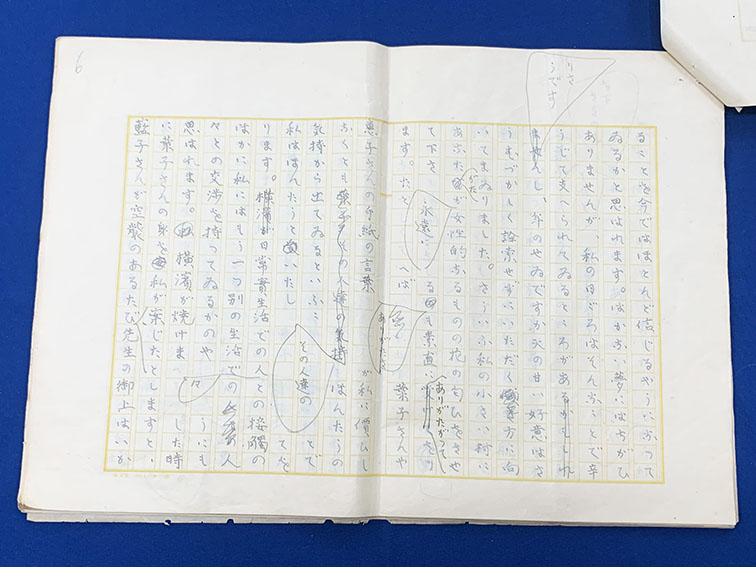 6
りさ
うです
ることを今ではほとんど信じるやうになつて
ゐるかと思はれます。はかない夢にはちがひ
ありませんが、私の日ごろはそんなことで辛
うじて支へられてゐるところがあるかもしれ
ませんし、年のせゐですか人の甘い好意はさ
うもづかしく詮索せずにいただく方に向
いてまゐりました。さういふ私の小さい窓に
あなたがたが女性的なるものの花の匂ひをさせ
て下さ 永遠に る 素直に ありがたがつて
ます。たとへば 葉子さんや
恵子さんの手紙の言葉 ありがたさ が私に價ひし
なくとも その人達の氣持 ほんたうの
気持から出てゐるといふこ その人達の とで
私はほんたうと いたし てを
ります。横濱が日常實生活での人との接觸の
ほかに私にはもう一つ別の生活での 人
々との交渉を持つてゐるかのや うにも
思はれます。 横濱が焼けま した時
に葉子さんの身を私が案じたとしますと、
藍子さんが空襲のあるたび先生の御上はいか